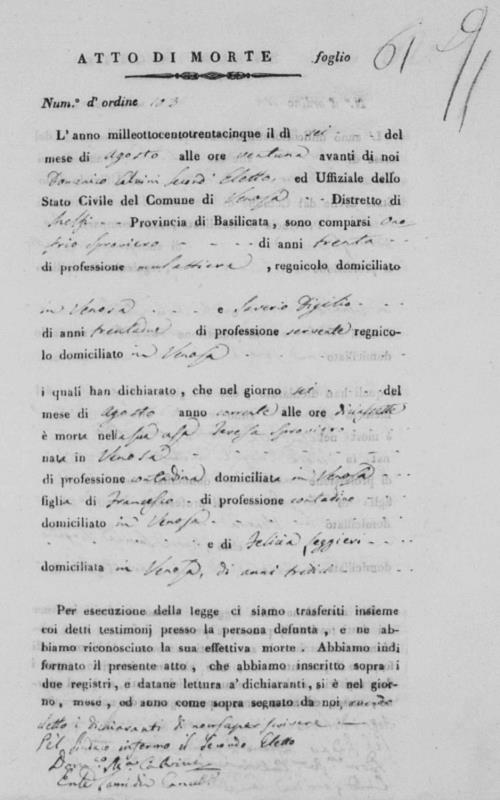 ATTO DI MORTE foglio 61
Num.° d' ordine 103
L'anno milleottocentotrentacinque il dì sei del
mese di Agosto alle ore ventuna avanti di noi
Domenico Calvini Second' Eletto ed Uffiziale dello
Stato Civile del Comune di Venosa Distretto di
Melfi Provincia di Basilicata, sono comparsi Ono
frio Sproviero di anni trenta
di professione mulattiere, regnicolo domiciliato
in Venosa e Saverio Digilio
di anni trentadue di professione servente regnico-
lo domiciliato in Venosa
i quali han dichiarato, che nel giorno sei del
mese di Agosto anno corrente alle ore diciassette
è morta nella sua casa Teresa Sproviero
nata in Venosa
di professione contadina domiciliata in Venosa
figlia di Francesco di professione contadino
domiciliato in Venosa
e di Felicia Leggieri
domiciliata in Venosa, di anni tredici
Per esecuzione della legge ci siamo trasferiti insieme
coi detti testimonj presso la persona defunta, e ne ab-
biamo riconosciuto la sua effettiva morte. Abbiamo indi
formato il presente atto, che abbiamo inscritto sopra i
due registri, e datane lettura a' dichiaranti, si è nel gior-
no, mese, od anno come sopra segnato da noi, avendo
detto i dichiaranti di non saper scrivere
Pel Sindaco infermo il Secondo Eletto